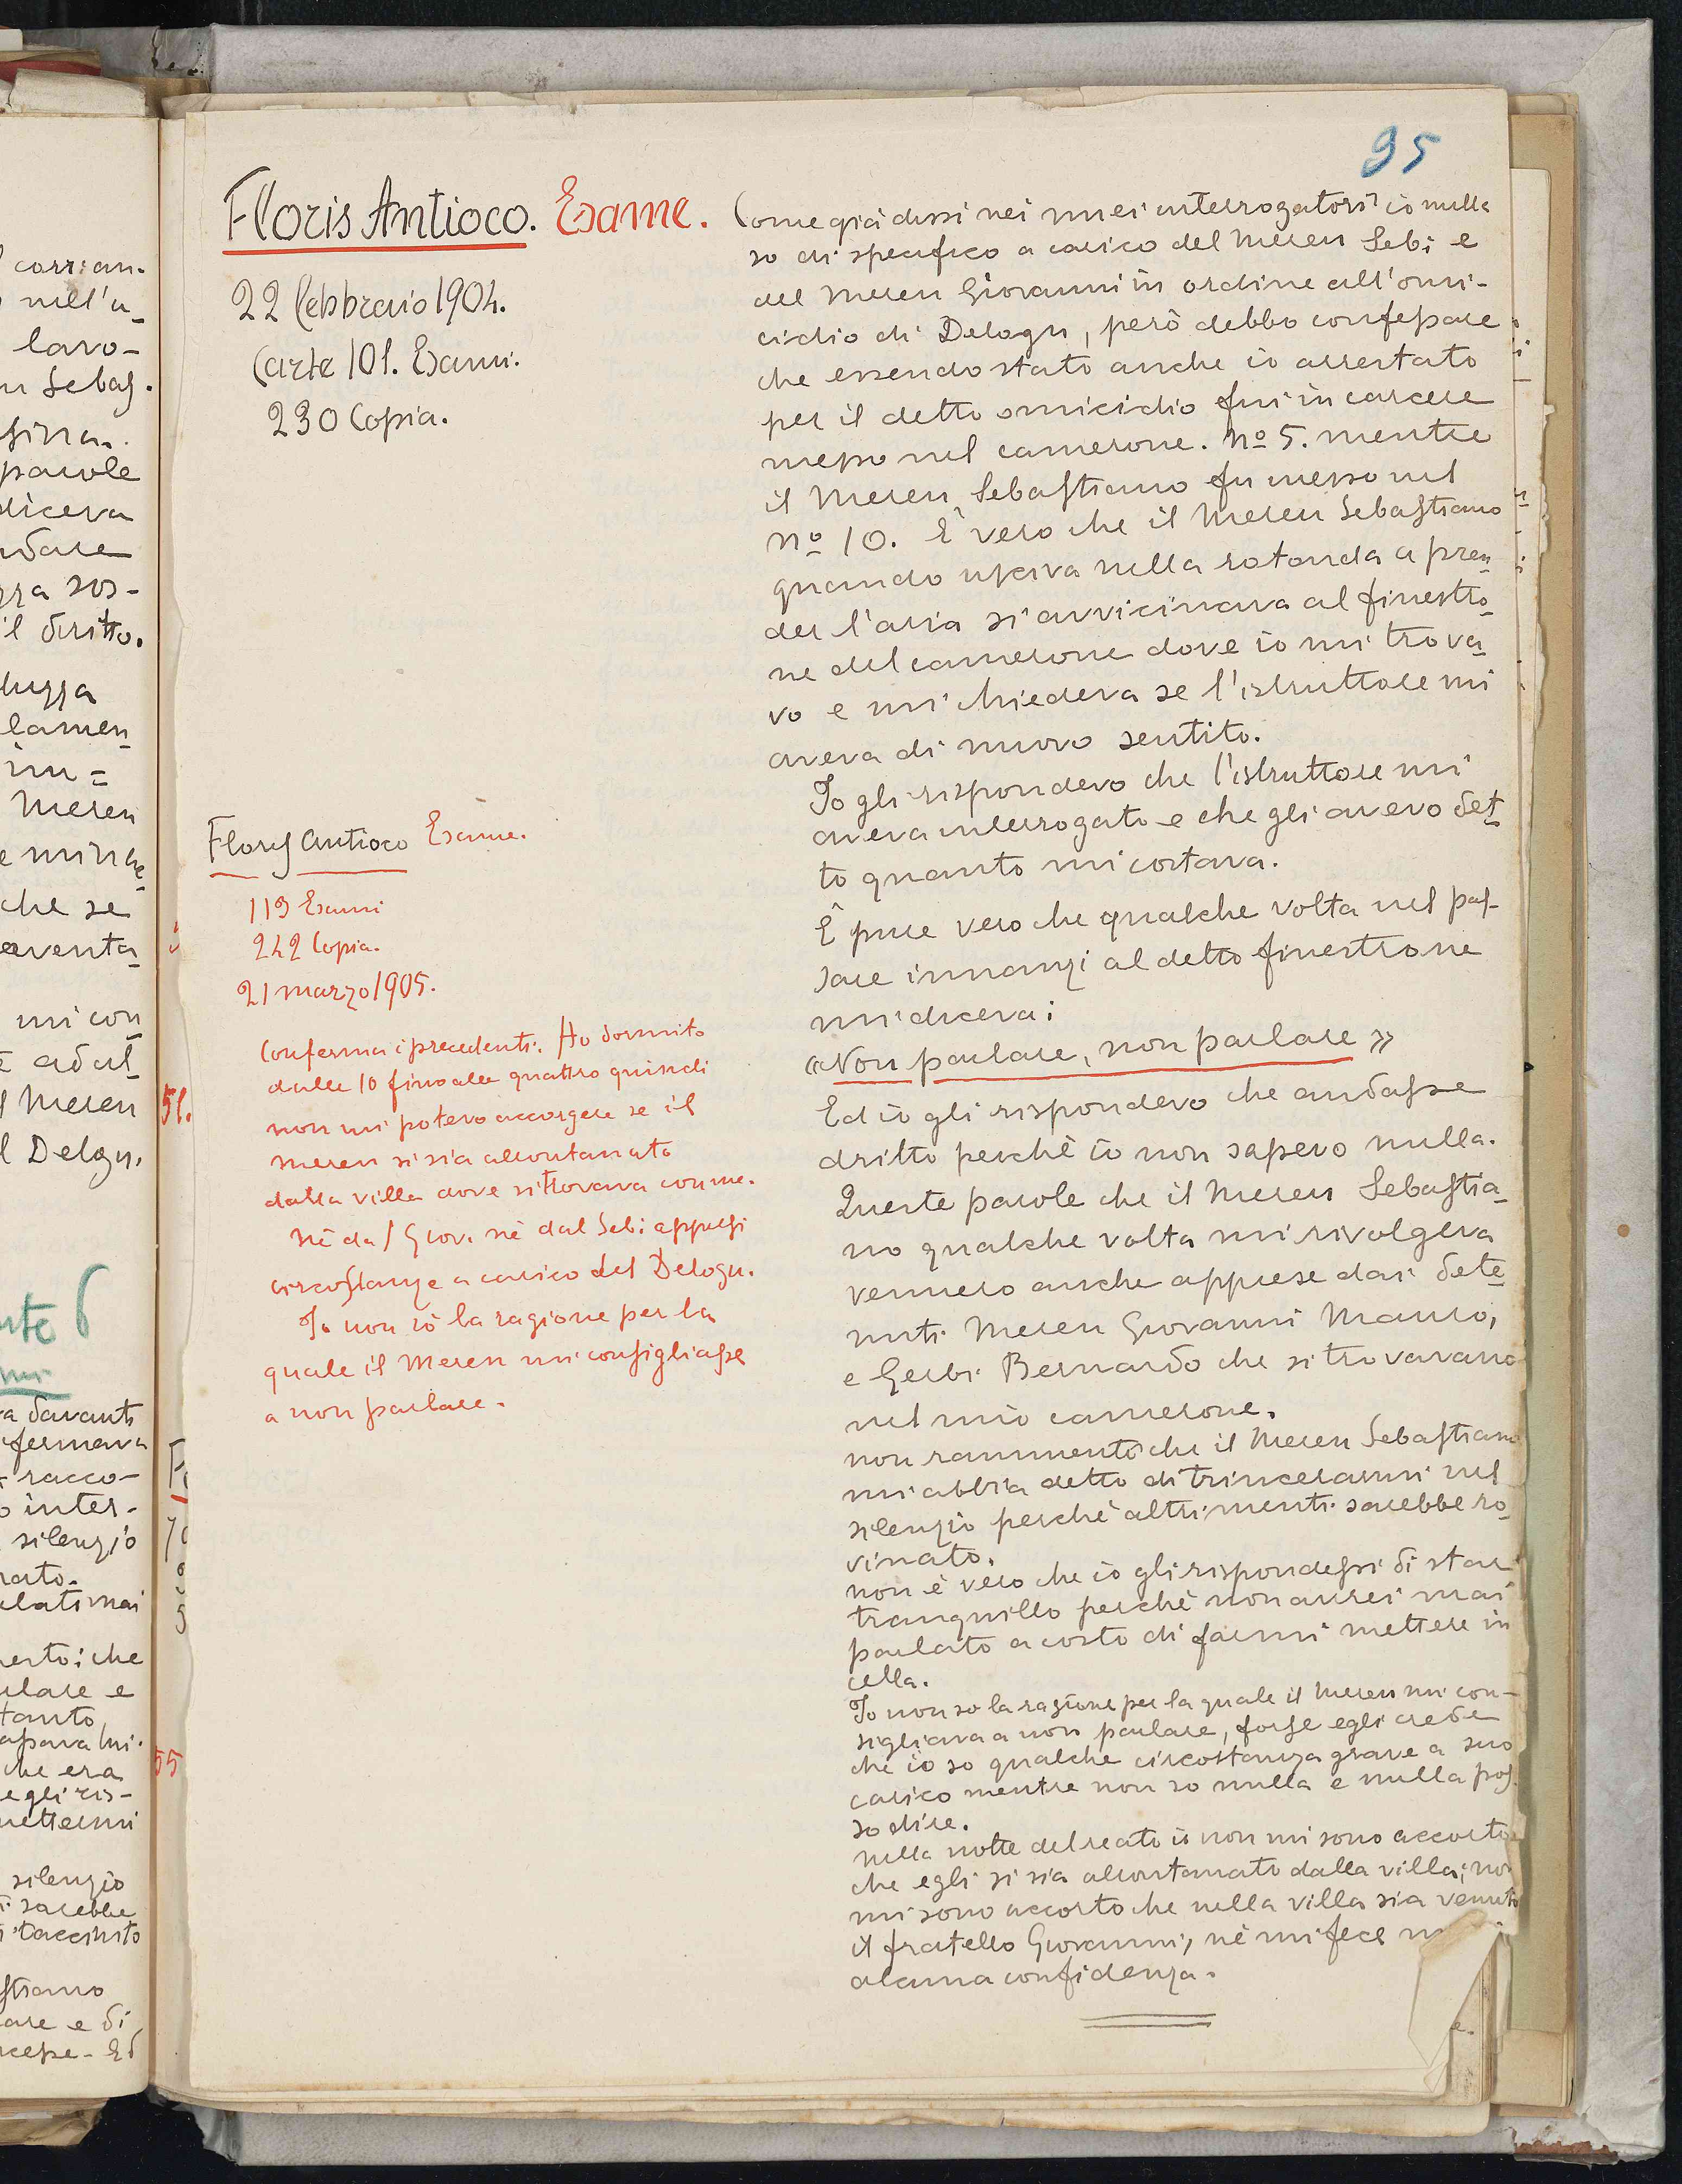 95
Floris Antioco. Esame.
22 febbraio 1904.
Carte 101. Esami.
230 Copia.
Floris Antioco Esame.
119 Esami
242 Copia.
21 marzo 1905.
Conferma i precedenti. Ho dormito
dalle 10 fino alle quattro quindi
non mi potevo accorgere se il
Mereu si sia allontanato
dalla villa dove si trovava con me.
Nè dal Giov. nè dal Seb: appresi
circostanze a carico del Delogu.
Io non sò la ragione per la
quale il Mereu mi consigliasse
a non parlare.
Come già dissi nei miei interrogatorî io nulla
so di specifico a carico del Mereu Seb: e
del Mereu Giovanni in ordine all'omi-
cidio di Delogu, però debbo confessare
che essendo stato anche io arrestato
per il detto omicidio fui in carcere
messo nel camerone. No 5. mentre
il Mereu Sebastiano fu messo nel
No 10. È vero che il Mereu Sebastiano
quando usciva nella rotonda a pren_
der l'aria si avvicinava al finestro_
ne del camerone dove io mi trova_
vo e mi chiedeva se l'istruttore mi
aveva di nuovo sentito.
Io gli rispondevo che l'istruttore mi
aveva interrogato e che gli avevo det_
to quanto mi costava.
È pure vero che qualche volta nel pas-
sare innanzi al detto finestrone
mi diceva:
«Non parlare, non parlare»
Ed io gli rispondevo che andasse
dritto perchè io non sapevo nulla.
Queste parole che il Mereu Sebastia_
no qualche volta mi rivolgeva
vennero anche apprese dai dete_
nuti Mereu Giovanni Mauro,
e Gerbi Bernardo che si trovavano
nel mio camerone.
non rammento che il Mereu Sebastiano
mi abbia detto di trincerarmi nel
silenzio perchè altrimenti sarebbe ro_
vinato.
non è vero che io gli rispondessi di star
tranquillo perchè non avrei mai
parlato a costo di farmi mettere in
cella.
Io non so la ragione per la quale il Mereu mi con-
sigliava a non parlare, forse egli crede
che io so qualche circostanza grave a suo
carico mentre non so nulla e nulla pos-
so dire.
nella notte del reato io non mi sono accorto
che egli si sia allontanato dalla villa; non
mi sono accorto che nella villa sia venuto
il fratello Giovanni, nè mi fece
alcuna confidenza.